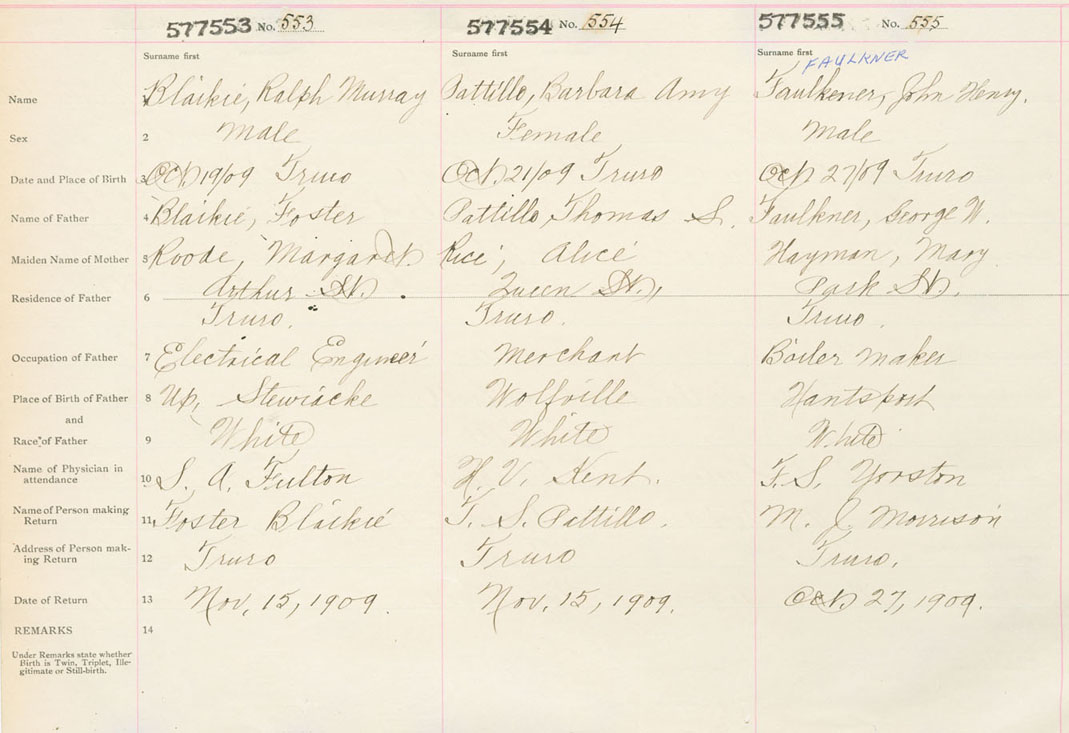 577553 No. 553 577554 No. 554 577555 No. 555
Surname first Surname first Surname first
FAULKNER
Name 1 Blaikie, Ralph Murray Pattillo, Barbara Amy Faulkener, John Henry.
Sex 2 Male Female Male
Date and Place of Birth 3 Oct. 19/09 Truro Oct. 21/09 Truro Oct 27/09 Truro
Name of Father 4 Blaikie, Foster Pattillo, Thomas S. Faulkner, George W.
Maiden Name of Mother 5 Roode, Margaret. Rice, Alice Hayman, Mary
Residence of Father 6 Arthur St. Queen St., Park St.
Truro. Truro. Truro.
Occupation of Father 7 Electrical Engineer Merchant Boiler maker
Place of Birth of Father 8 Up. Stewiacke Wolfville Hantsport
and
Race of Father 9 White White White
Name of Physician in
attendance 10 S. A. Fulton H. V. Kent. F. S. Yorston
Name of Person making
Return 11 Foster Blaikie T. S. Pattillo. M. J. Morrison
Address of Person mak-
ing Return 12 Truro Truro Truro.
Date of Return 13 Nov. 15, 1909. Nov. 15, 1909. Oct. 27, 1909.
REMARKS 14
Under Remarks state whether
Birth is Twin, Triplet, Ille-
gitimate or Still-birth.